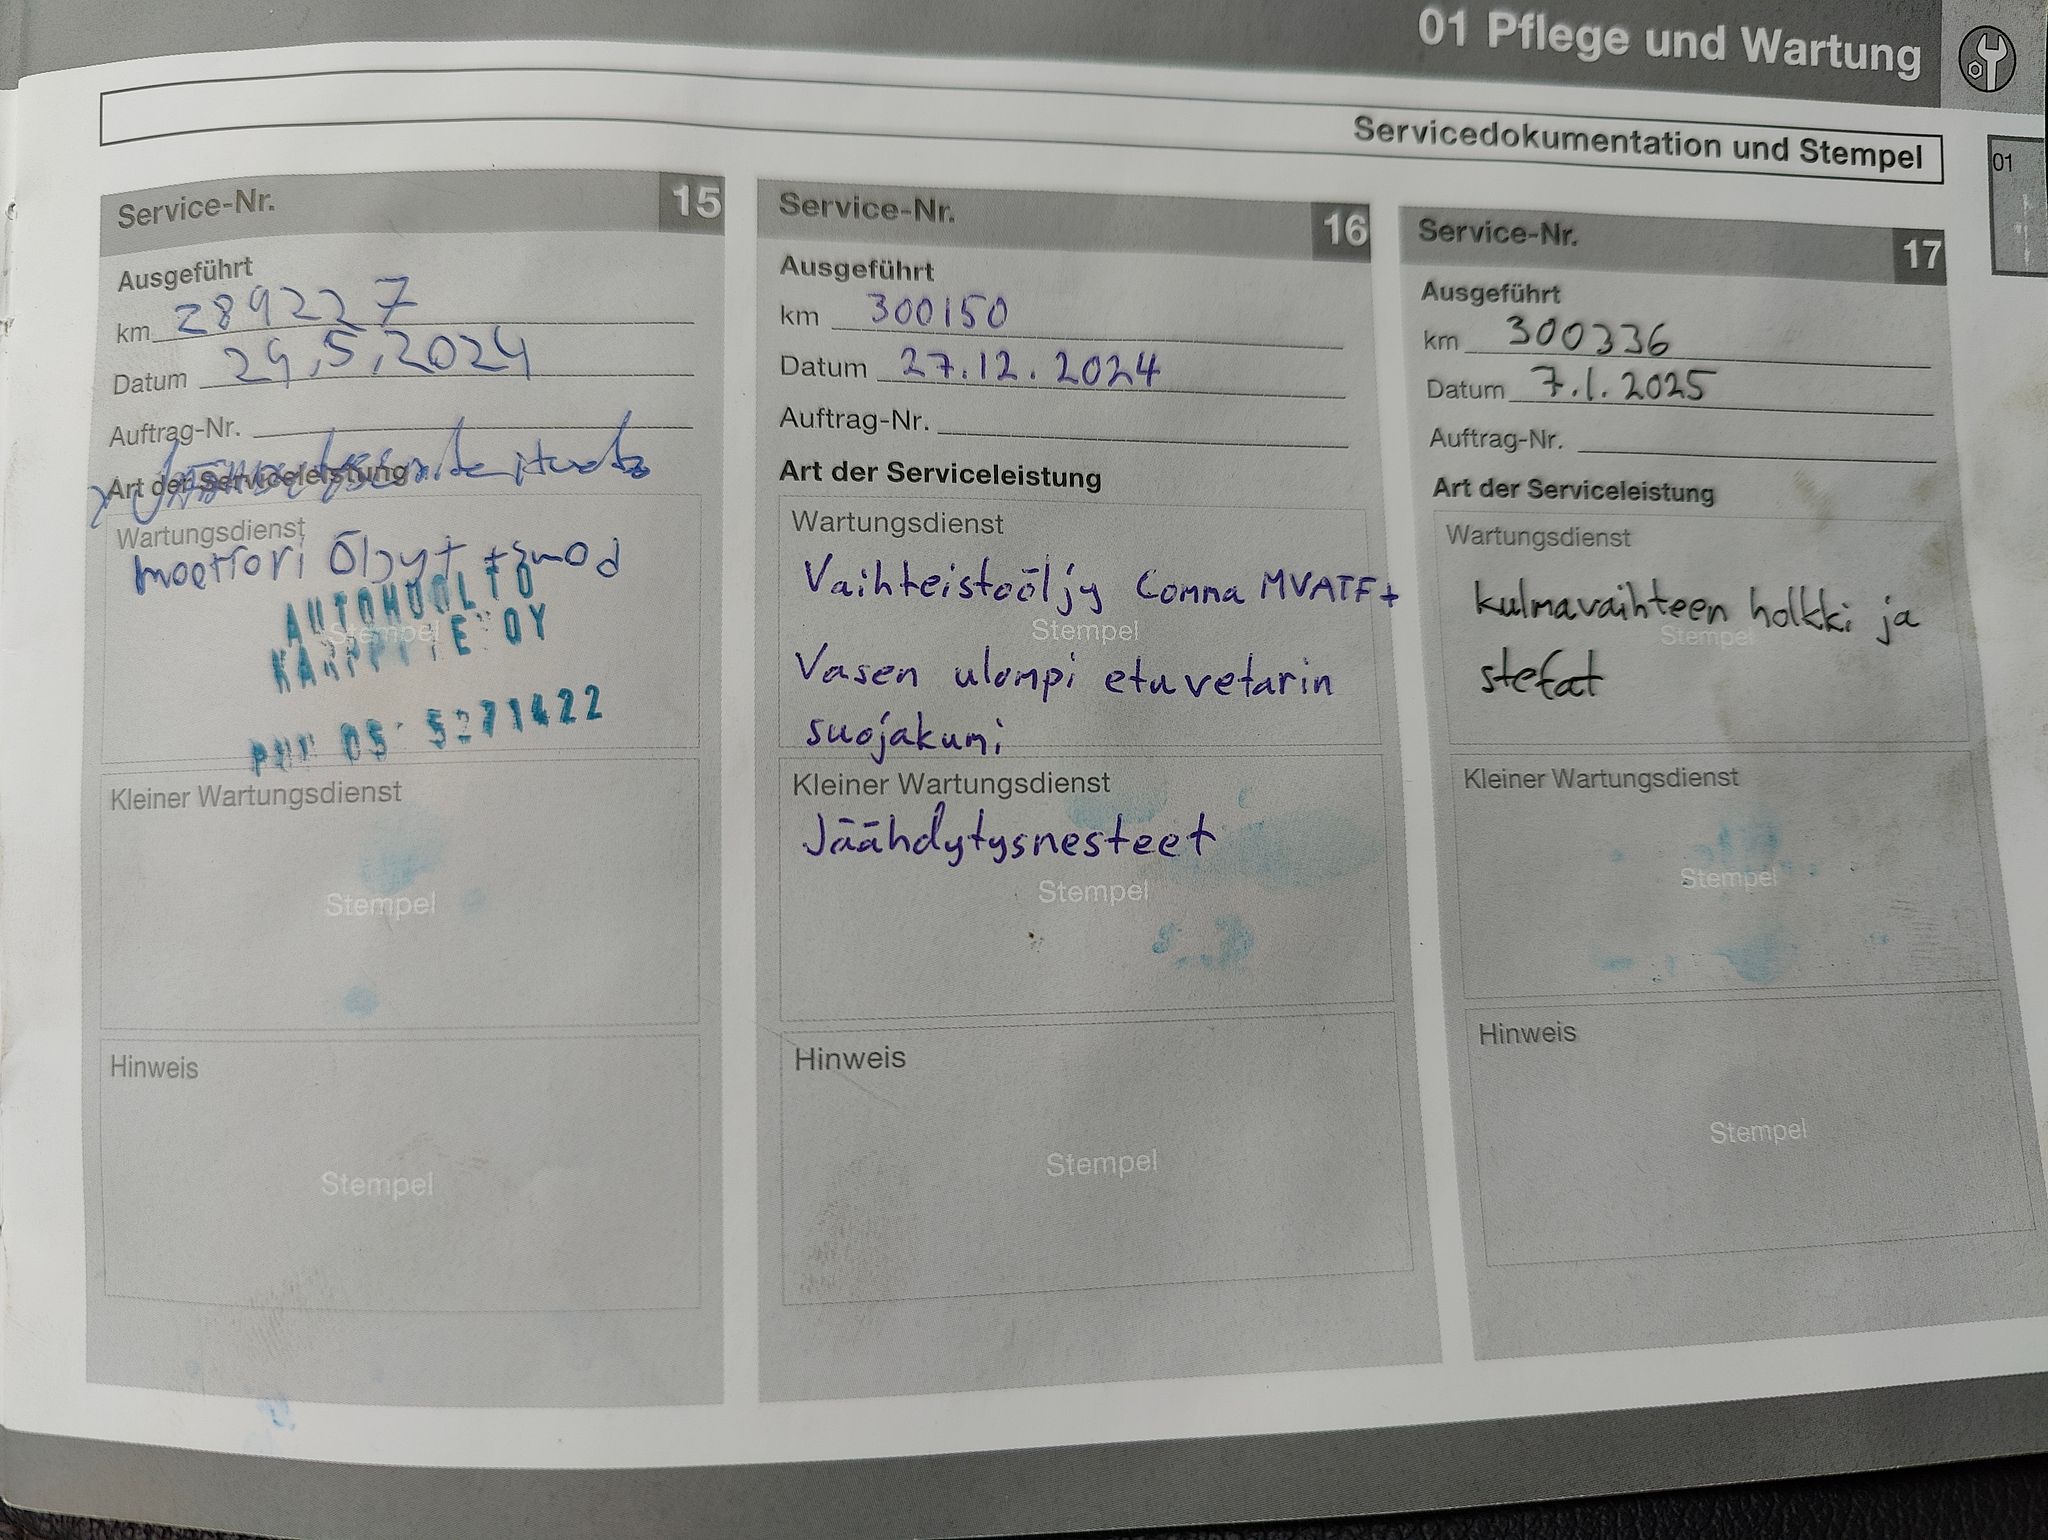 01 Pflege und Wartung
Servicedokumentation und Stempel
01
Service-Nr. 15
Ausgeführt
km 289227
Datum 29.5.2024
Auftrag-Nr.
Art der Serviceleistung
Wartungsdienst
moottori Öljyt +
AUTOHUOLTO
OY
PUH 05 5271422
Stempel
Kleiner Wartungsdienst
Stempel
Hinweis
Stempel
Service-Nr. 16
Ausgeführt
km 300150
Datum 27.12.2024
Auftrag-Nr.
Art der Serviceleistung
Wartungsdienst
Vaihteistoöljy Comma MVATF+
Stempel
Vasen ulompi etuvetarin
suojakumi
Kleiner Wartungsdienst
Jäähdytysnesteet
Stempel
Hinweis
Stempel
Service-Nr. 17
Ausgeführt
km 300336
Datum 7.1.2025
Auftrag-Nr.
Art der Serviceleistung
Wartungsdienst
kulmavaihteen holkki ja
Stempel
stefat
Kleiner Wartungsdienst
Stempel
Hinweis
Stempel